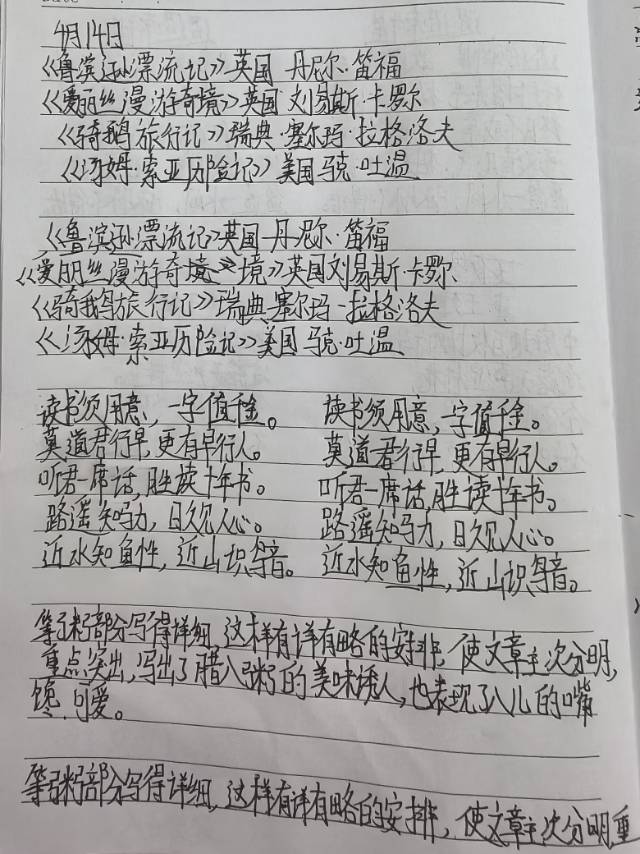 4月14日
《鲁滨逊漂流记》英国 丹尼尔·笛福
《爱丽丝漫游奇境》英国 刘易斯·卡罗尔
《骑鹅旅行记》瑞典·塞尔玛·拉格洛夫
《汤姆·索亚历险记》美国 马克·吐温
《鲁滨逊漂流记》英国 丹尼尔·笛福
《爱丽丝漫游奇境》境》英国刘易斯·卡罗尔
《骑鹅旅行记》瑞典 塞尔玛·拉格洛夫
《汤姆·索亚历险记》美国 马克·吐温
读书须用意,一字值千金。 读书须用意,一字值千金。
莫道君行早,更有早行人。 莫道君行早,更有早行人。
听君一席话,胜读十年书。 听君一席话,胜读十年书。
路遥知马力,日久见人心。 路遥知马力,日久见人心。
近水知鱼性,近山识鸟音。 近水知鱼性,近山识鸟音。
等粥部分写得详细,这样有详有略的安排,使文章主次分明,
重点突出,写出了腊八粥的美味诱人,也表现了八儿的嘴
馋、可爱。
等粥部分写得详细,这样有详有略的安排,使文章主次分明,重